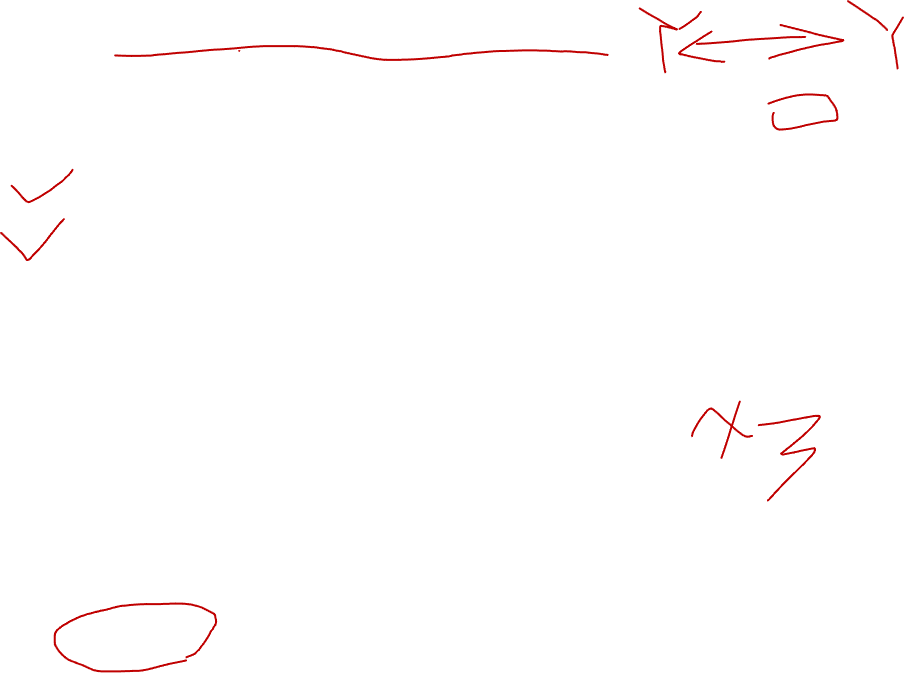 Y Y
x3